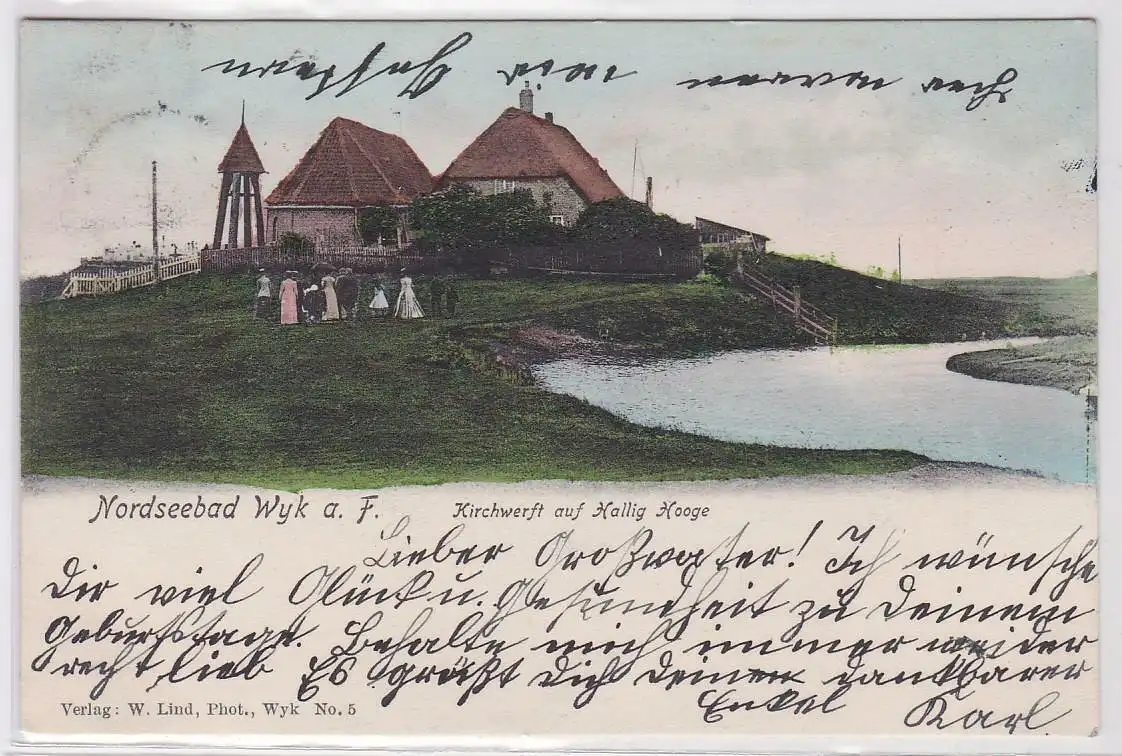 Nordseebad Wyk a. F. Kirchwerft auf Hallig Hooge
Lieber Großvater! Ich wünsche
Dir viel Glück u. Gesundheit zu Deinem
Geburtstage. Behalte mich immer weider
recht lieb Es grüßt Dich Deinen dankbarer
Enkel Karl.
Verlag: W. Lind, Phot., Wyk No. 5